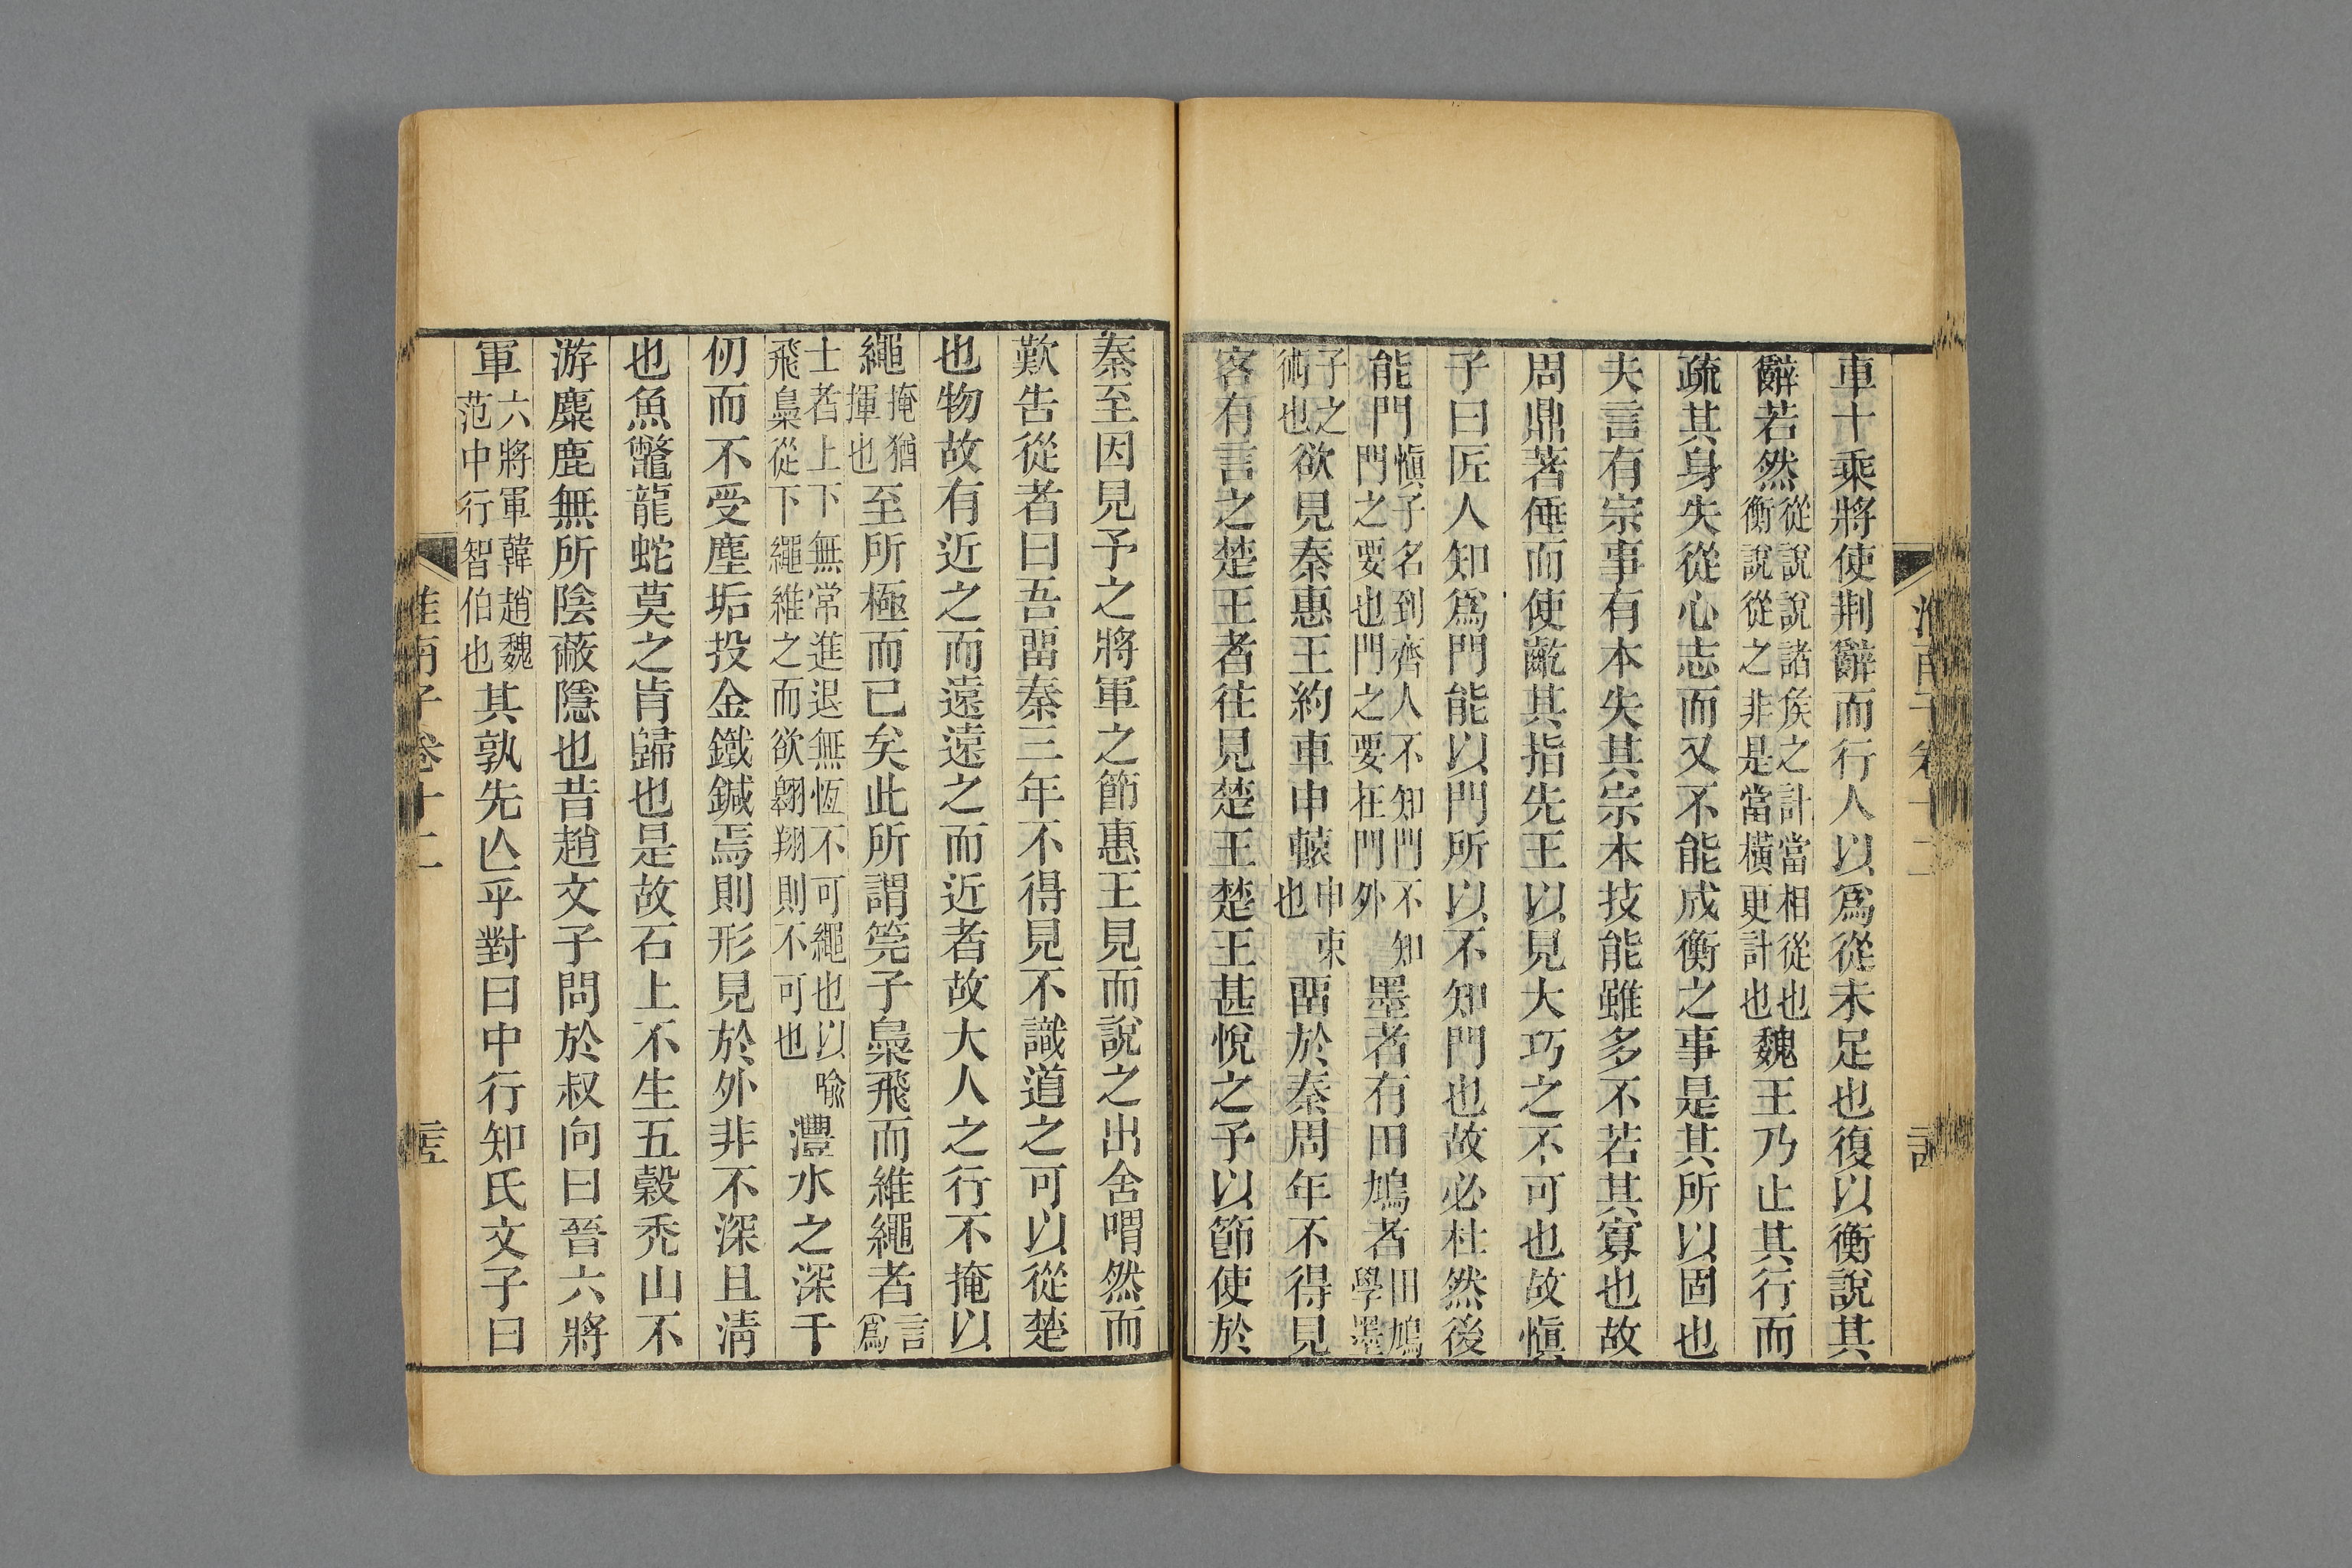 車十乘將使荆辭而行人以爲從未足也復以衡說其
辭若然從說說諸侯之計當相從也衡說從之非是當橫更計也魏王乃止其行而
疏其身失從心志而又不能成衡之事是其所以固也
夫言有宗事有本失其宗本技能雖多不若其寡也故
周鼎著倕而使齕其指先王以見大巧之不可也故愼
子曰匠人知爲門能以門所以不知門也故必杜然後
能門愼子名到齊人不知門不知門之要也門之要在門外墨者有田鳩者田鳩學墨
子之術也欲見秦惠王約車申轅申束也畱於秦周年不得見
客有言之楚王者往見楚王楚王甚悅之予以節使於
秦至因見予之將軍之節惠王見而說之出舍喟然而
歎告從者曰吾畱秦三年不得見不識道之可以從楚
也物故有近之而遠遠之而近者故大人之行不掩以
繩掩猶揮也至所極而已矣此所謂筦子梟飛而維繩者言爲
士者上下無常進退無恆不可繩也以喻飛梟從下繩維之而欲翱翔則不可也灃水之深千
仞而不受塵垢投金鐵鍼焉則形見於外非不深且淸
也魚鼈龍蛇莫之肯歸也是故石上不生五穀禿山不
游麋鹿無所陰蔽隱也昔趙文子問於叔向曰晉六將
軍六將軍韓趙魏范中行智伯也其孰先亾乎對曰中行知氏文子曰
淮南子卷十二